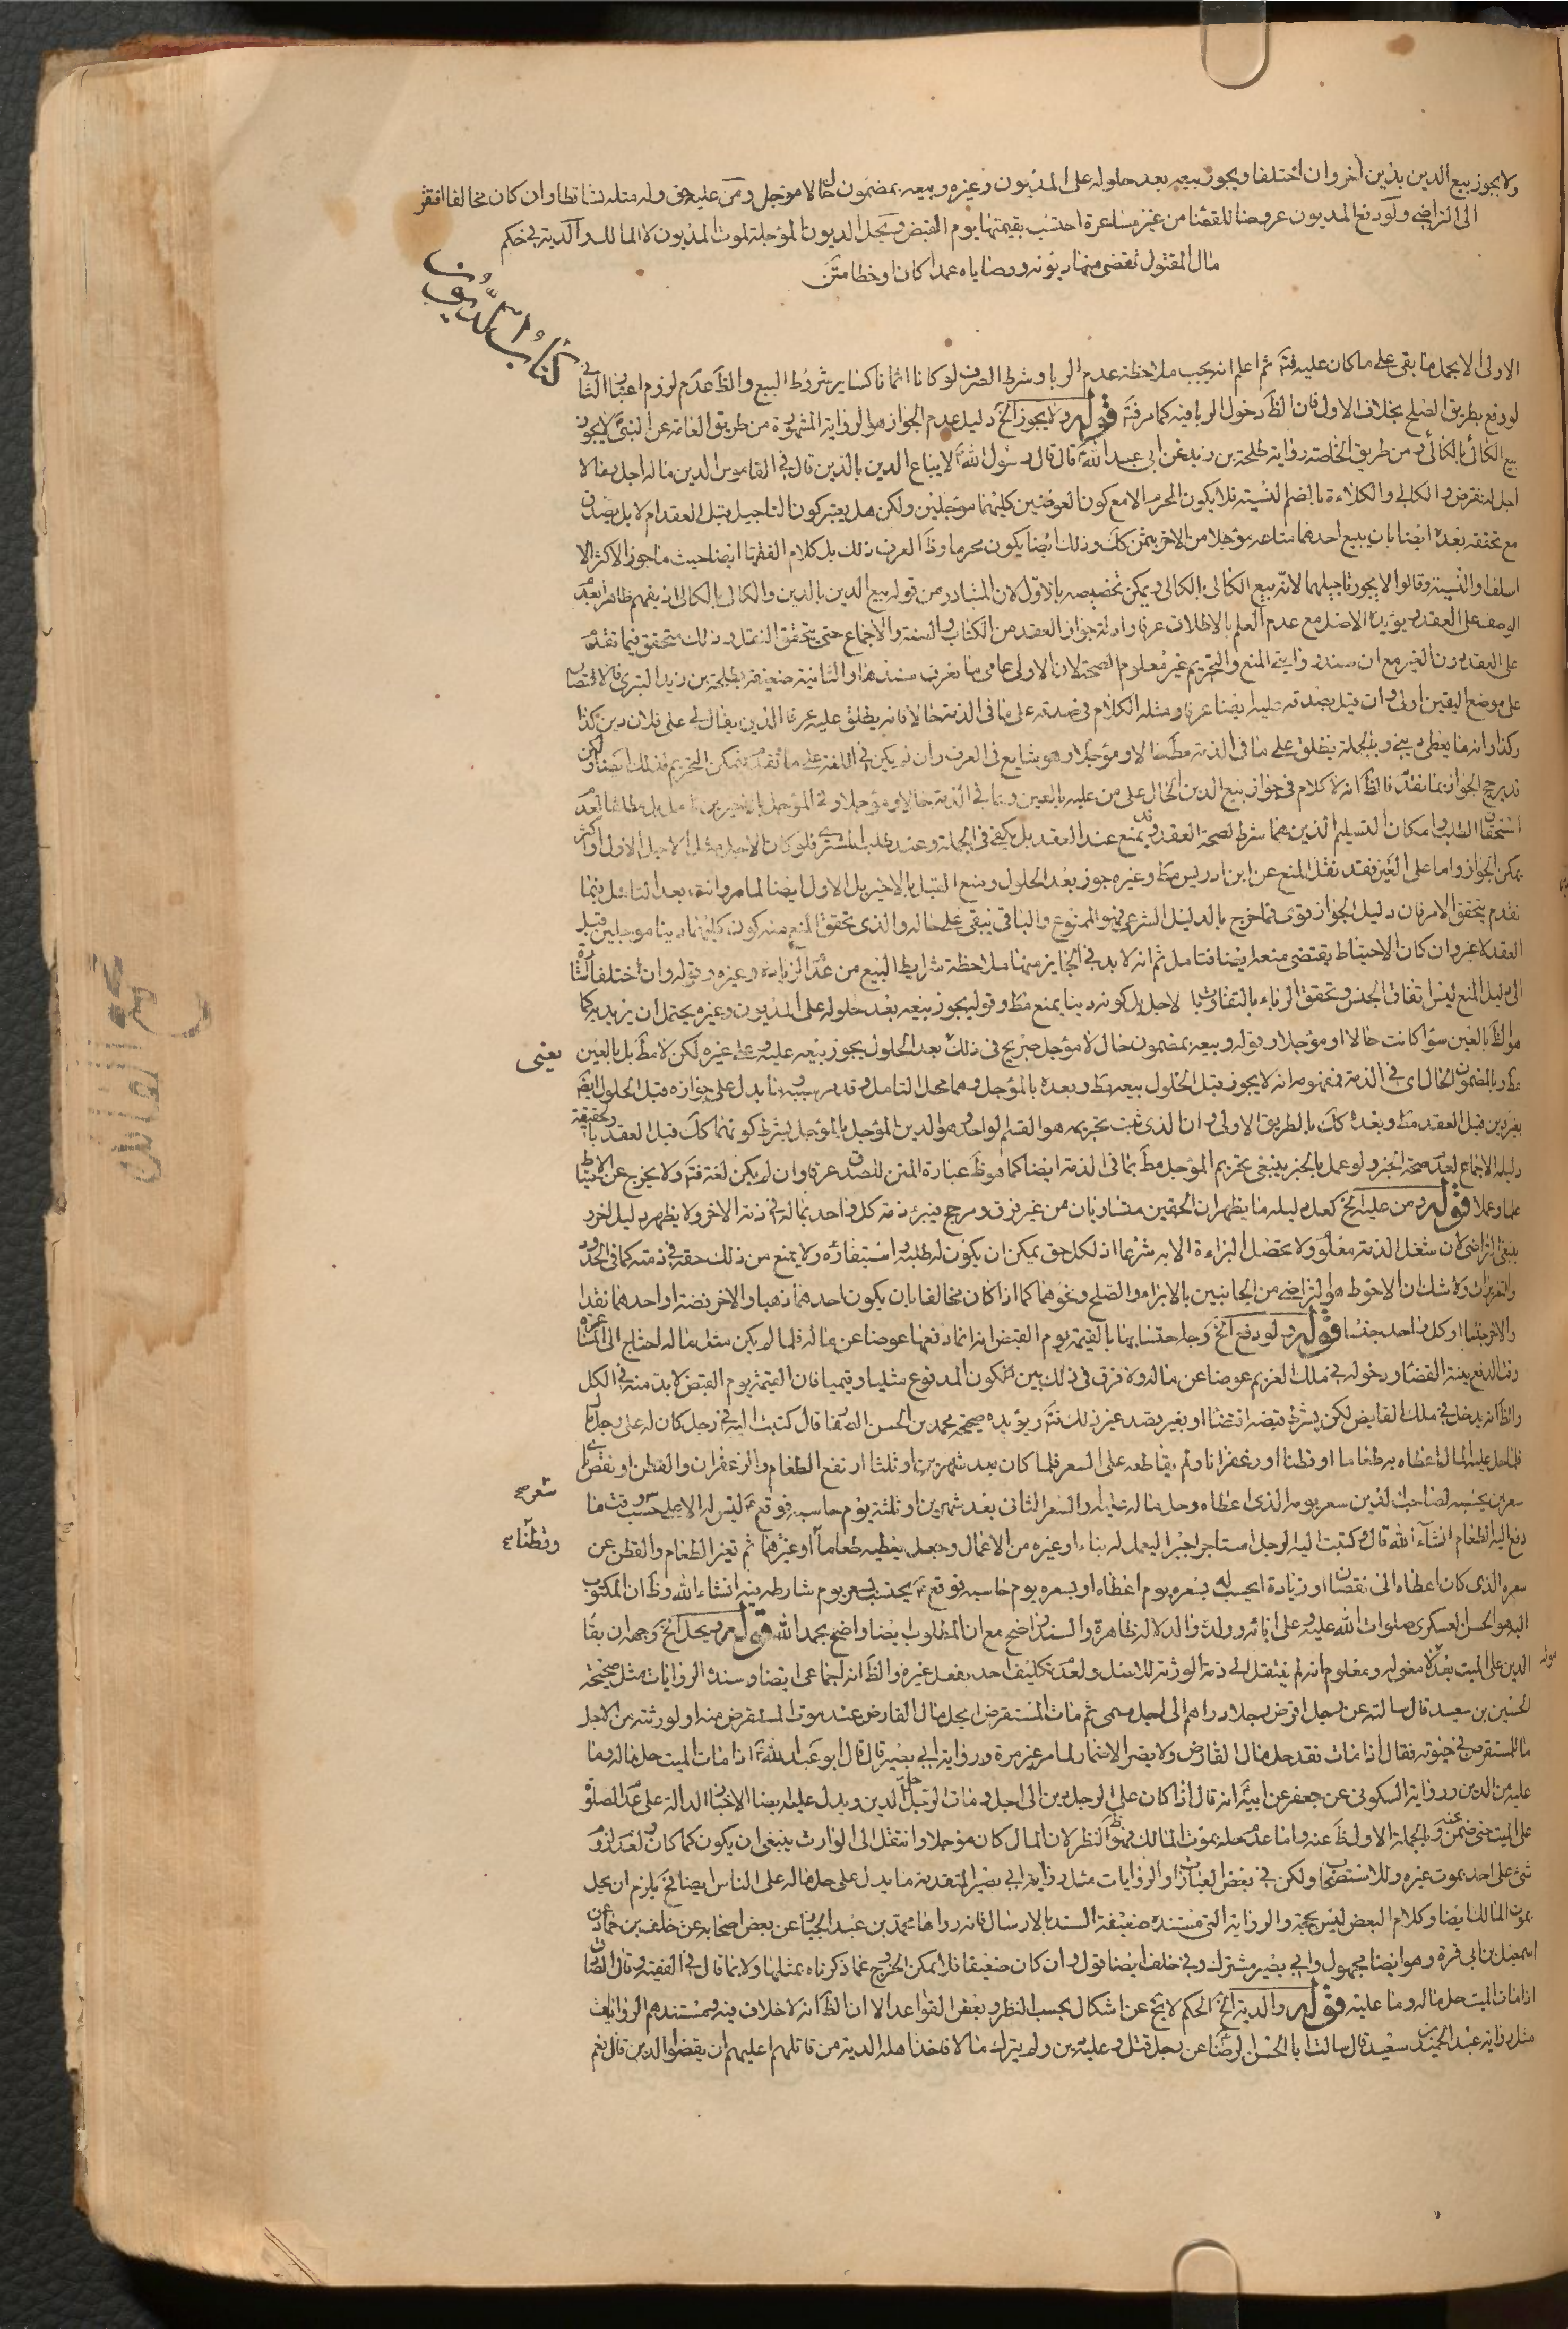 ولا يجوز بيع الدين بدين اخر وان اختلفا ويجوز بيعه بعد حلوله على المديون وغيره وبيعه بمضمون حالا لا مؤجل ومن عليه حق وله مثله تساقطا وان كان مخالفا افتقر
الى التراضي ولو دفع المديون عروضا للقضاء من غير مساعرة احتسب بقيمتها يوم القبض وتحل الديون المؤجلة بموت المديون لا المالك والدية في حكم
مال المقتول تقضى منها ديونه ووصاياه عمدا كان او خطا متن
كتاب الديون
الاولى الا بحل ما بقي على ما كان عليه فتم ثم اعلم انه يجب ملاحظة عدم الربا وشرط الصرف لو كانا اثمانا كساير شروط البيع والظ عدم لزوم اعتبار الثاني
لو وقع بطريق الصلح بخلاف الاول فان الظ دخول الربا فيه كما مر فتم قوله ولا يجوز الخ دليل عدم الجواز هو الرواية المشهورة من طريق العامة عن النبي لا يجوز
بيع الكالى بالكالى ومن طريق الخاصة رواية طلحة بن زيد عن ابي عبد الله قال قال رسول الله لا يباع الدين بالدين قال في القاموس الدين ماله اجل وما لا
اجل له فقرض والكالي والكلاءة بالضم النسية فلا يكون المحرم الا مع كون العوضين كليهما مؤجلين ولكن هل يعتبر كون التاجيل قبل العقد ام لا بل يصدق
مع تحققه بعده ايضا بان يبيع احدهما متاعه مؤجلا من الاخر بثمن كك وذلك ايضا يكون محرما وظ العرف ذلك بل كلام الفقهاء ايضا حيث ما جوز الاكثر الا
اسلفا والنسية وقالوا لا يجوز تاجيلهما لانه بيع الكالى بالكالى ويمكن تخصيصه بالاول لان المتبادر من قوله بيع الدين بالدين والكالى بالكالى اذ يفهم ظاهرا بعد
الوصف على العقد ويؤيده الاصل مع عدم العلم بالاطلاق عرفا وادلة جواز العقد من الكتاب والسنة والاجماع حتى يتحقق النقل وذلك متحقق فيما تقدم
على العقد دون الغير مع ان سند روايتي المنع والتحريم غير معلوم الصحة لان الاولى عامي ما نعرف سندها والثانية ضعيفة بطلحة بن زيد البتري فالاقتصار
على موضع اليقين اولى وان قيل بصدقه عليه ايضا عرفا ومثله الكلام في صدقه على ما في الذمة حالا فانه يطلق عليه عرفا الدين يقال لي على فلان دين كذا
وكذا وانه ما يعطى ديني وبالجملة يطلق على ما في الذمة مطلقا حالا ومؤجلا وهو شايع في العرف وان لم يكن في اللغة على ما تقدم فيمكن التحريم فيذلك ايضا ولكن
قد يرجح الجواز بما تقدم فالظ انه لا كلام في جواز بيع الدين الحال على من عليه بالعين وبما في الذمة حالا ومؤجلا
استحقاق الطلب وامكان التسليم الذين هما شرط لصحة العقد وقد يمنع عند العقد بل يكفي في الجملة وعند طلب المشتري فلو كان الاجل مثل الاجل الاول او اكثر
يمكن الجواز واما على الغير فقد نقل المنع عن ابن ادريس مط وغيره جوز بعد الحلول ومنع القبل بالاخير بل الاول ايضا لما مر وانت بعد التامل فيما
تقدم يتحقق الامر فان دليل الجواز قوى فما خرج بالدليل الشرعي فهو الممنوع والباقي يبقى على حاله والذي تحقق المنع منه كون كليهما دينا مؤجلين قبل
العقد لا غير وان كان الاحتياط يقتضي منعه ايضا فتامل ثم انه لابد في الجايز منهما ملاحظة شرايط البيع من عدم الزيادة وغيره وقوله وان اختلفا اشارة
الى دليل المنع ليس اتفاق الجنس وتحقق الرباء بالتفاوت بالاجل بل كونه دينا يمنع مط وقوله يجوز بيعه بعد حلوله على المديون وغيره يحتمل ان يريد به كما
هو الظ بالعين سواء كانت حالا او مؤجلا وقوله وبيعه بمضمون حال لا مؤجل صريح في ذلك بعد الحلول يجوز بيعه عليه وعلى غيره لكن لا مط بل بالعين
يعني
مط وبالمضمون الحال اي في الذمة فمفهومه انه لا يجوز قبل الحلول بيعه مط وبعده بالمؤجل وهما محل التامل وقد مر سببه وما يدل على جوازه قبل الحلول ايضا
بغير دين قبل العقد مط وبعده كك بالطريق الاولى وان الذي ثبت تحريمه هو القسم الواحد وهو الدين المؤجل بالمؤجل بشرط كونهما كك قبل العقد
وتحقيقه
دليله الاجماع لعدم صحة الخبر ولو عمل بالخبر ينبغي تحريم المؤجل مط بما في الذمة ايضا كما هو ظ عبارة المتن للصدق عرفا وان لم يكن لغة فتم ولا يخرج عن الاحتياط
علما وعملا قوله ومن عليه الخ لعل دليله ما يظهر ان الحقين متساويان من غير فرق ومرجح فيبرئ ذمة كل واحد بماله في ذمة الاخر ولا يظهر دليل اخر و
ينبغي التراضي لان شغل الذمة معلوم ولا يحصل البراءة الا به شرعا اذ لكل حق يمكن ان يكون له طلبه واستيفاؤه ولا يمنع من ذلك حقه في ذمته كما في الحدود
والتعزيرات ولا شك ان الاحوط هو التراضي من الجانبين بالابراء والصلح ونحوهما كما اذا كان مخالفا بان يكون احدهما ذهبا والاخر فضة او احدهما نقدا
والاخر جنسا او كل واحد جنسا قوله ولو دفع الخ وجه احتسابها بالقيمة يوم القبض انه انما دفعها عوضا عن ماله فلما لم يكن مثل ماله احتاج الى المساعرة
وقت الدفع بنية القضاء ودخوله في ملك الغريم عوضا عن ماله ولا فرق في ذلك بين كون المدفوع مثليا وقيميا فان القيمة يوم القبض لابد منه في الكل
والظ انه يدخل في ملك القابض لكن بشرط قبضه اقتضاء او بغير قصد غير ذلك فتم ويؤيده صحيحة محمد بن الحسن الصفار قال كتبت اليه في رجل كان له على رجل مال
فلما حل عليه المال اعطاه به طعاما او قطنا او زعفرانا ولم يقاطعه على السعر فلما كان بعد شهرين او ثلثة ارتفع الطعام والزعفران والقطن او نقص باي
سعرين يحسبه لصاحب الدين سعر يومه الذي اعطاه وحل ماله عليه او السعر الثاني بعد شهرين او ثلثة يوم حاسبه فوقع ليس له الا على حسب سعر وقت ما
شعر صح
دفع اليه الطعام انشاء الله قال وكتبت اليه الرجل استاجر اجيرا ليعمل له بناء او غيره من الاعمال وجعل يعطيه طعاما او غيرهما ثم تغير الطعام والقطن عن
وقطنا صح
سعره الذي كان اعطاه الى نقصان او زيادة ايحسب له بسعره يوم اعطاه او بسعره يوم حاسبه فوقع يحتسب بسعر يوم شارطه فيه انشاء الله وظ ان المكتوب
اليه هو الحسن العسكري صلوات الله عليه وعلى ابائه وولده والدلالة ظاهرة والسند واضح مع ان المطلوب ايضا واضح بحمد الله قوله ويحل الخ وجهه ان بقاء
الدين على الميت بعد موته لا معنى له ومعلوم انه لم ينتقل الى ذمة الورثة للاصل ولعدم تكليف احد بفعل غيره والظ انه اجماعي ايضا وسنده الروايات مثل صحيحة
الحسين بن سعيد قال سالته عن رجل اقرض رجلا دراهم الى اجل مسمى ثم مات المستقرض ايحل مال القارض عند موت المستقرض منه او لورثته من الاجل
ما للمستقرض في حيوته فقال اذا مات فقد حل مال القارض ولا يضر الاضمار لما مر غير مرة ورواية ابي بصير قال قال ابو عبد الله اذا مات الميت حل ماله وما
عليه من الدين ورواية السكوني عن جعفر عن ابيه انه قال اذا كان على الرجل دين الى اجل ومات الرجل حل الدين ويدل عليه ايضا الاخبار الدالة على عدم الصلوة
على الميت حتى ضمن عنه وبالجملة الاول ظ عنه واما عدم حله بموت المالك فهو ظ النظر لان المال كان مؤجلا وانتقل الى الوارث ينبغي ان يكون كما كان ولعدم لزوم
شيء على احد بموت غيره وللاستصحاب ولكن في بعض العبارات او الروايات مثل رواية ابي بصير المتقدمة ما يدل على حل ماله على الناس ايضا فح يلزم ان يحل
بموت المالك ايضا وكلام البعض ليس بحجة والرواية التي مستنده ضعيفة السند بالارسال فانه رواها محمد بن عبد الجبار عن بعض اصحابه عن خلف بن حماد عن
اسمعيل بن ابي قرة وهو ايضا مجهول وابي بصير مشترك وفي خلف ايضا قول وان كان ضعيفا فلا يمكن الخروج عما ذكرناه بمثلها ولا بما قال في الفقيه وقال الصادق
اذا مات الميت حل ماله وما عليه قوله والدية الخ الحكم لا يخ عن اشكال بحسب النظر وبعض القواعد الا ان الظ انه لا خلاف فيه ومستندهم الروايات
مثل رواية عبد الحميد بن سعيد قال سالت ابا الحسن الرضا عن رجل قتل وعليه دين ولم يترك مالا فاخذ اهله الدية من قاتلهم اعليهم ان يقضوا الدين قال نعم